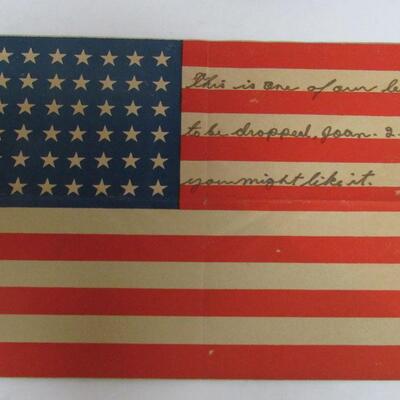 This is one of our le
to be dropped, Joan. I
you might like it.